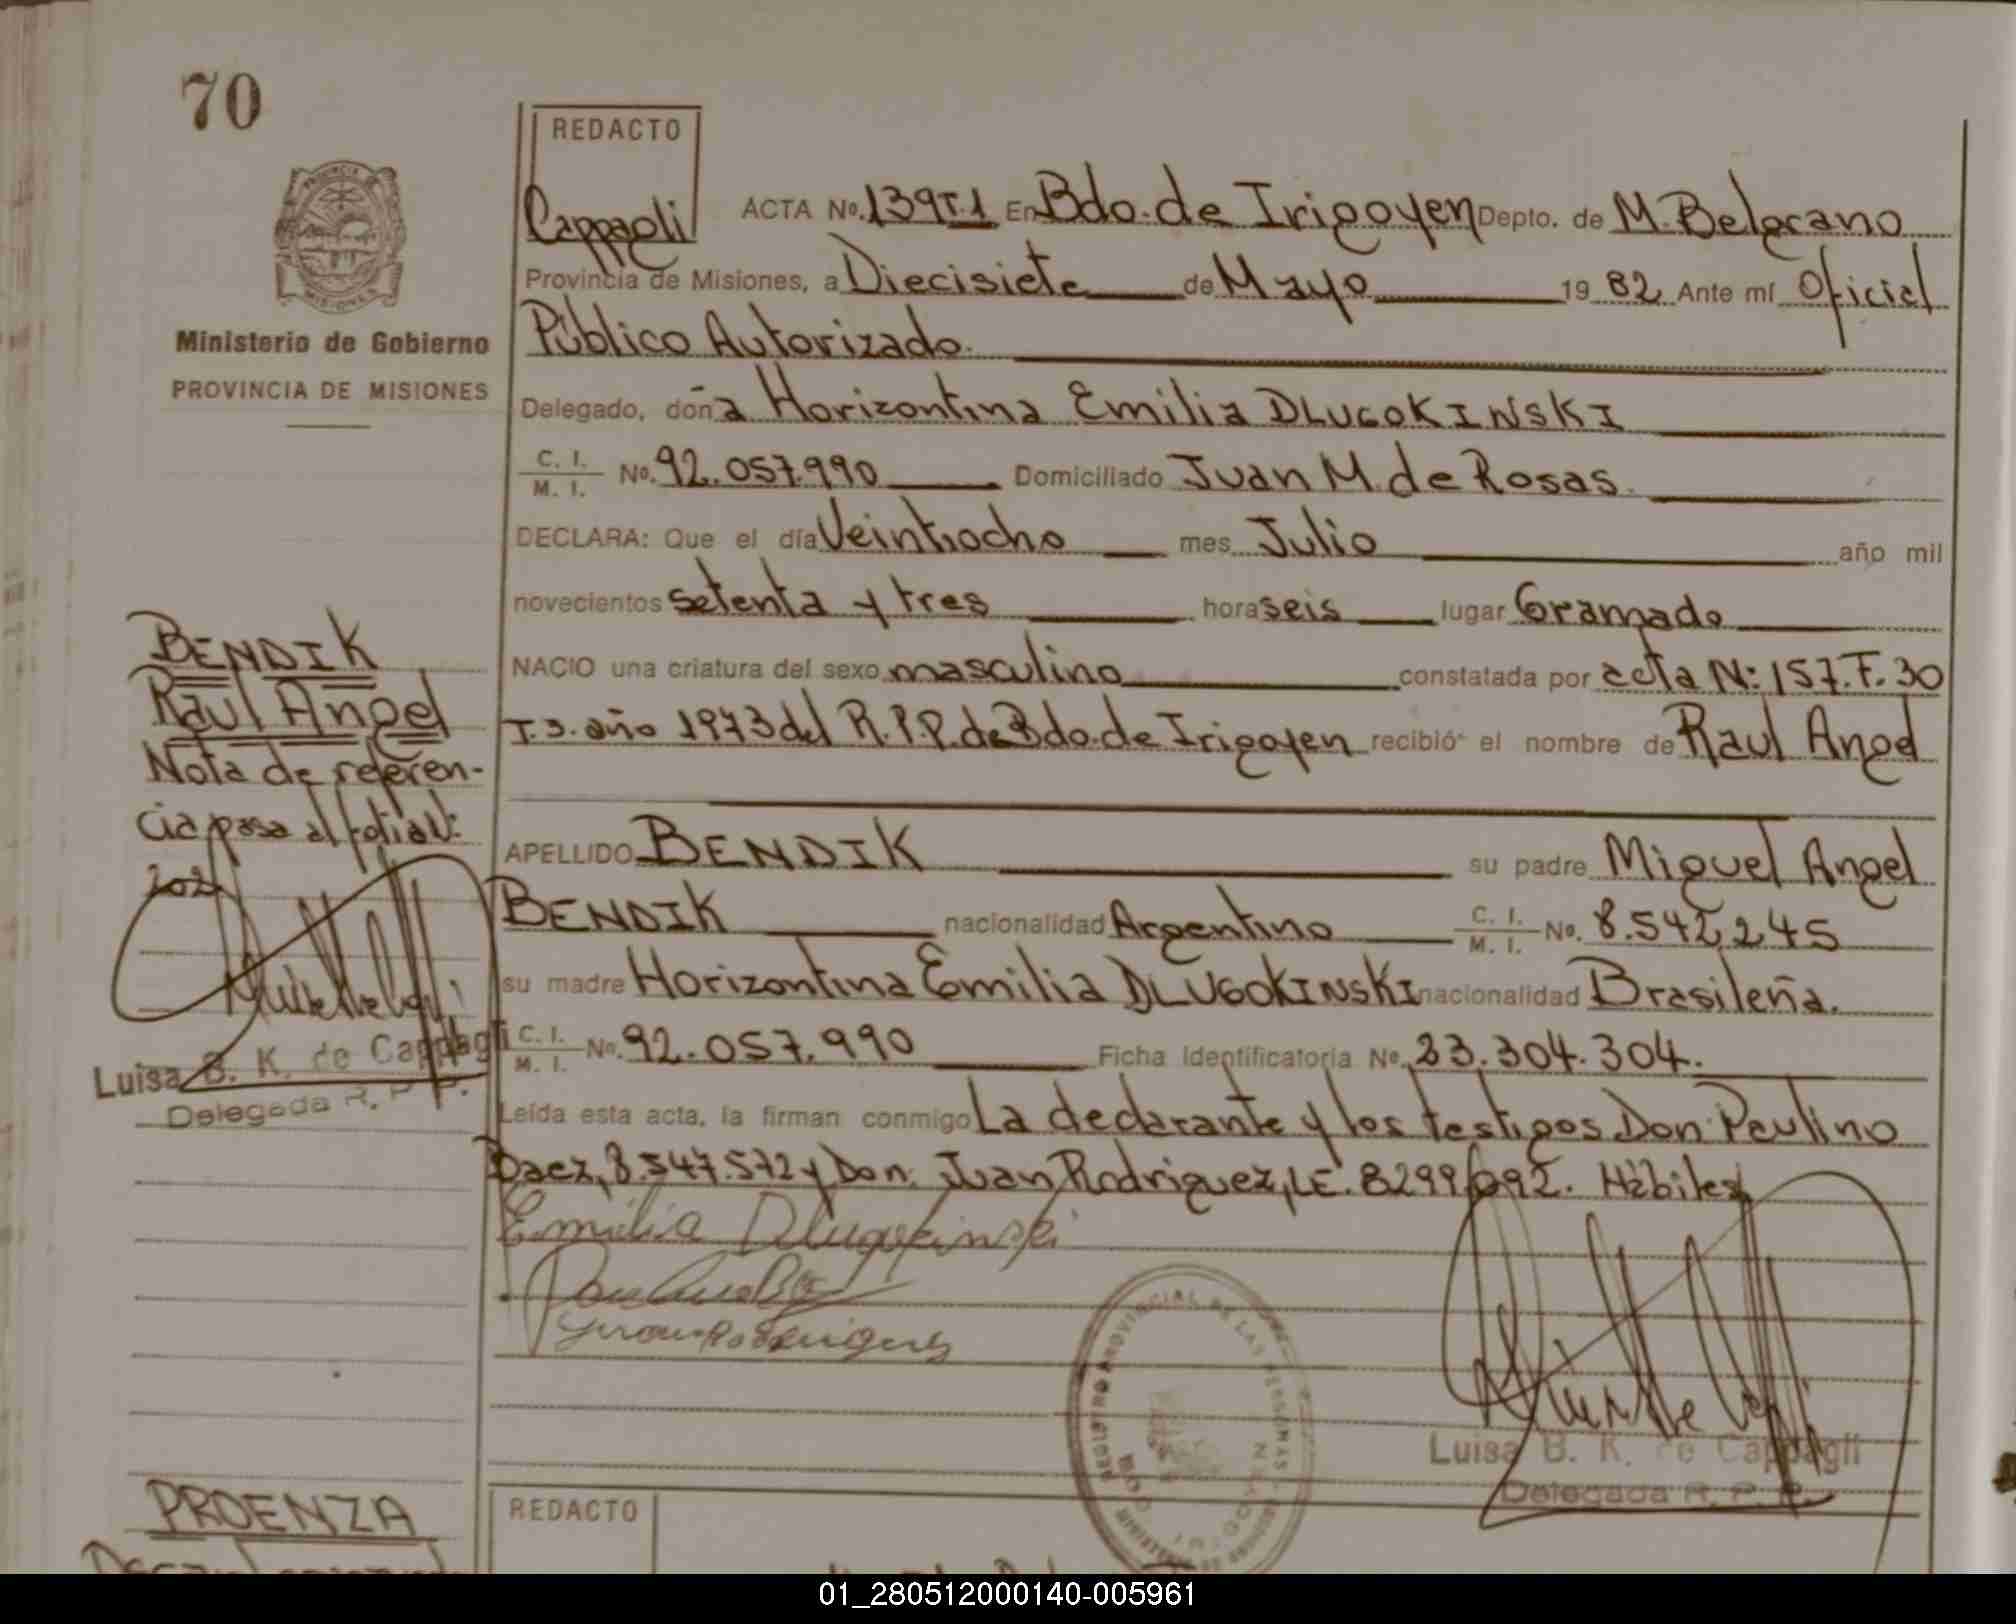 70
REDACTO
Cappagli
ACTA No. 139T.1 En Bdo. de Irigoyen Depto. de M. Belgrano
Provincia de Misiones, a Diecisiete de Mayo 1982 Ante mí Oficial
Ministerio de Gobierno
PROVINCIA DE MISIONES
Público Autorizado.
Delegado, doña Horizontina Emilia DLUGOKINSKI
C. I. / M. I. No. 92.057.990 Domiciliado Juan M. de Rosas.
DECLARA: Que el día Veintiocho mes Julio año mil
novecientos setenta y tres hora seis lugar Gramado
NACIO una criatura del sexo masculino constatada por acta N: 157. F. 30
T. 3. año 1973 del R.P.P. de Bdo. de Irigoyen recibió el nombre de Raul Angel
APELLIDO BENDIK su padre Miguel Angel
BENDIK nacionalidad Argentino C. I. / M. I. No. 8.542.245
su madre Horizontina Emilia DLUGOKINSKI nacionalidad Brasileña.
C. I. / M. I. No. 92.057.990 Ficha Identificatoria No. 23.304.304.
Leída esta acta, la firman conmigo La declarante y los testigos Don Paulino
Baez, 8.547.572 y Don. Juan Rodriguez, LE. 8299092. Hábiles
Emilia Dlugokinski
Juan Rodriguez
BENDIK
Raul Angel
Nota de referen-
cia pasa al folio N:
202
Luisa B. K. de Cappagli
Delegada R. P. P.
REGISTRO PROVINCIAL DE LAS PERSONAS
BDO. IRIGOYEN
Luisa B. K. de Cappagli
Delegada R. P. P.
PROENZA
REDACTO
01_280512000140-005961